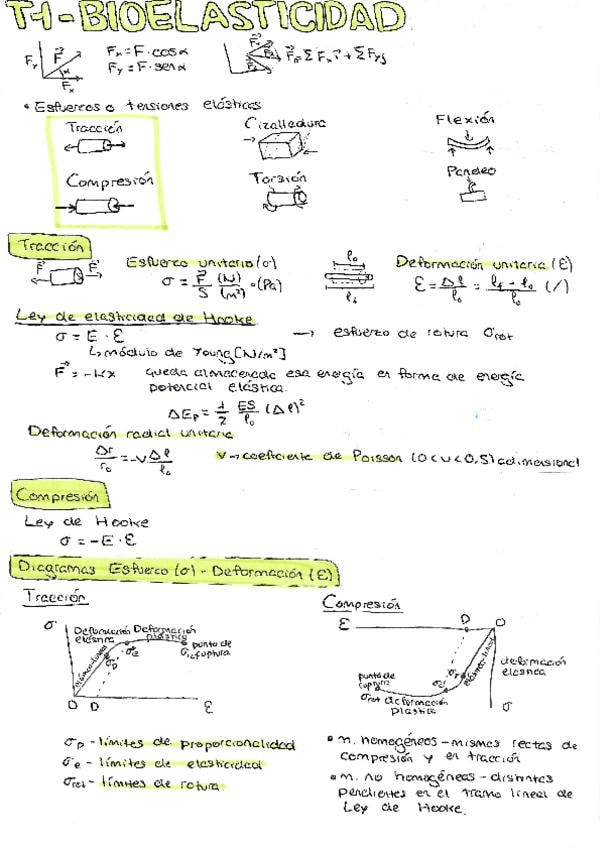 T-1-BIOELASTICIDAD
Fy F α Fx
Fx = F·cosα
Fy = F·senα
F⃗R = ΣFx i⃗ + ΣFy j
• Esfuerzos o tensiones elásticas
Tracción
Cizalladura
Flexión
Compresión
Torsión
Pandeo
Tracción
F⃗ F⃗
Esfuerzo unitario (σ)
σ = F⃗/S (N)/(m²) • (Pa)
l₀
lf
Deformación unitaria (ε)
ε = Δl/l₀ = (lf - l₀)/l₀ (/)
Ley de elasticidad de Hooke
σ = E · ε
→ esfuerzo de rotura σrot
↳ módulo de Young [N/m²]
F⃗ = -kx queda almacenada esa energía en forma de energía
potencial elástica.
ΔEp = 1/2 ES/l₀ (Δl)²
Deformación radial unitaria
Δr/r₀ = -ν Δl/l₀
ν → coeficiente de Poisson (0<ν<0,5) adimensional
Compresión
Ley de Hooke
σ = -E · ε
Diagramas Esfuerzo (σ) - Deformación (ε)
Tracción
σ
Deformación elástica
Deformación plástica
punto de ruptura
elástico-lineal
σp
σe
O D ε
Compresión
ε D O
punto de ruptura
σrot deformación plástica
σe
elástico-lineal
deformación elástica
σ
σp - límites de proporcionalidad
σe - límites de elasticidad
σrot - límites de rotura
• m. homogéneos - mismas rectas de
compresión y en tracción
• m. no homogéneos - distintas
pendientes en el tramo lineal de
Ley de Hooke.